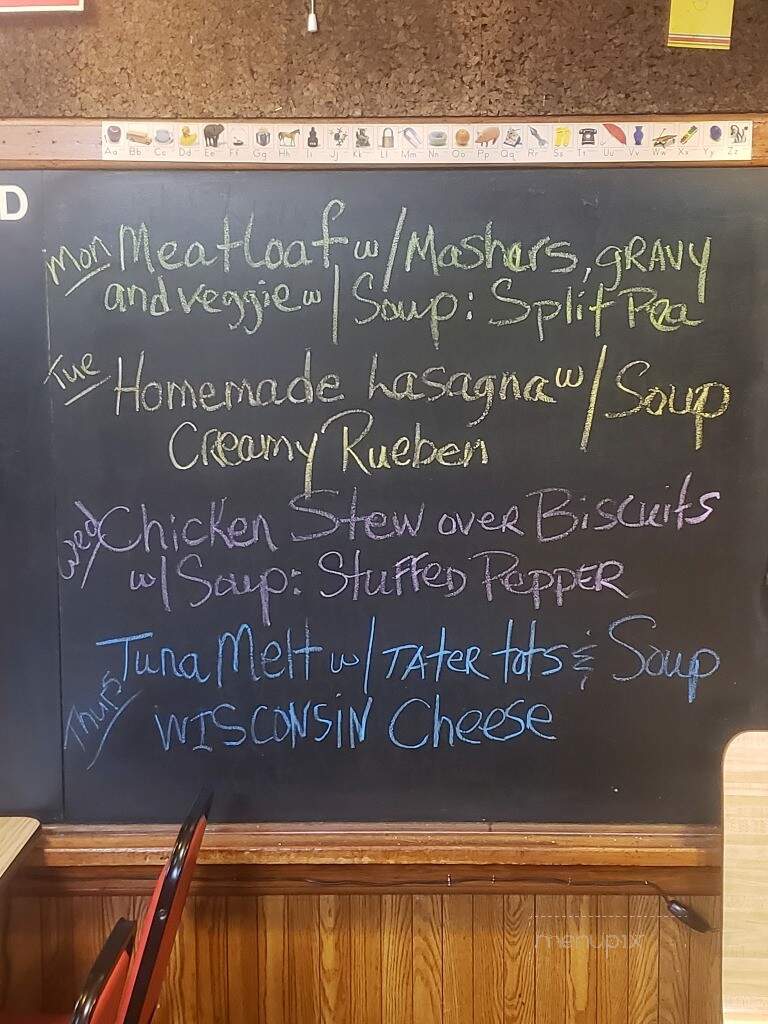 Aa Bb Cc Dd Ee Ff Gg Hh Ii Jj Kk Ll Mm Nn Oo Pp Qq Rr Ss Tt Uu Vv Ww Xx Yy Zz
D
Mon Meatloaf w/Mashers, gRAVY
and veggie w/ Soup: Split Pea
Tue Homemade Lasagna w/Soup
Creamy Rueben
Wed Chicken Stew over Biscuits
w/Soup: Stuffed Pepper
Thurs Tuna Melt w/TATER tots & Soup
WISCONSIN Cheese
menupix